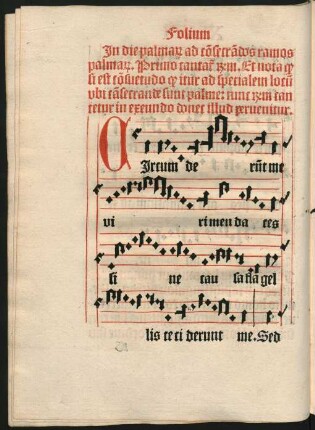 Folium
In die palmaꝝ ad cōsecrādos ramos
palmaꝝ. Primo cantat̄ ꝶm. Et nota ꝙ
si est cōsuetudo ꝙ itur ad specialem locū
vbi cōsecrande sunt palme: tunc ꝶm can
tetur in exeundo donec illud peruenitur.
CIrcum de rūt me
vi ri men da ces
si ne cau sa fla gel
lis ce ci derunt me. Sed